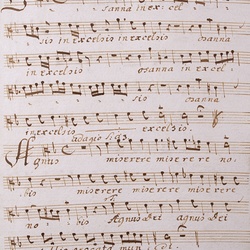 sanna in ex: cel
sio in excelsio in excelsio osanna
in excelsio osanna in excel
sio osanna
in excelsio excelsio.
adagio
Agnus miserere miserere no
bis miserere miserere
no bis Agnus Dei agnus dei
peccata mun